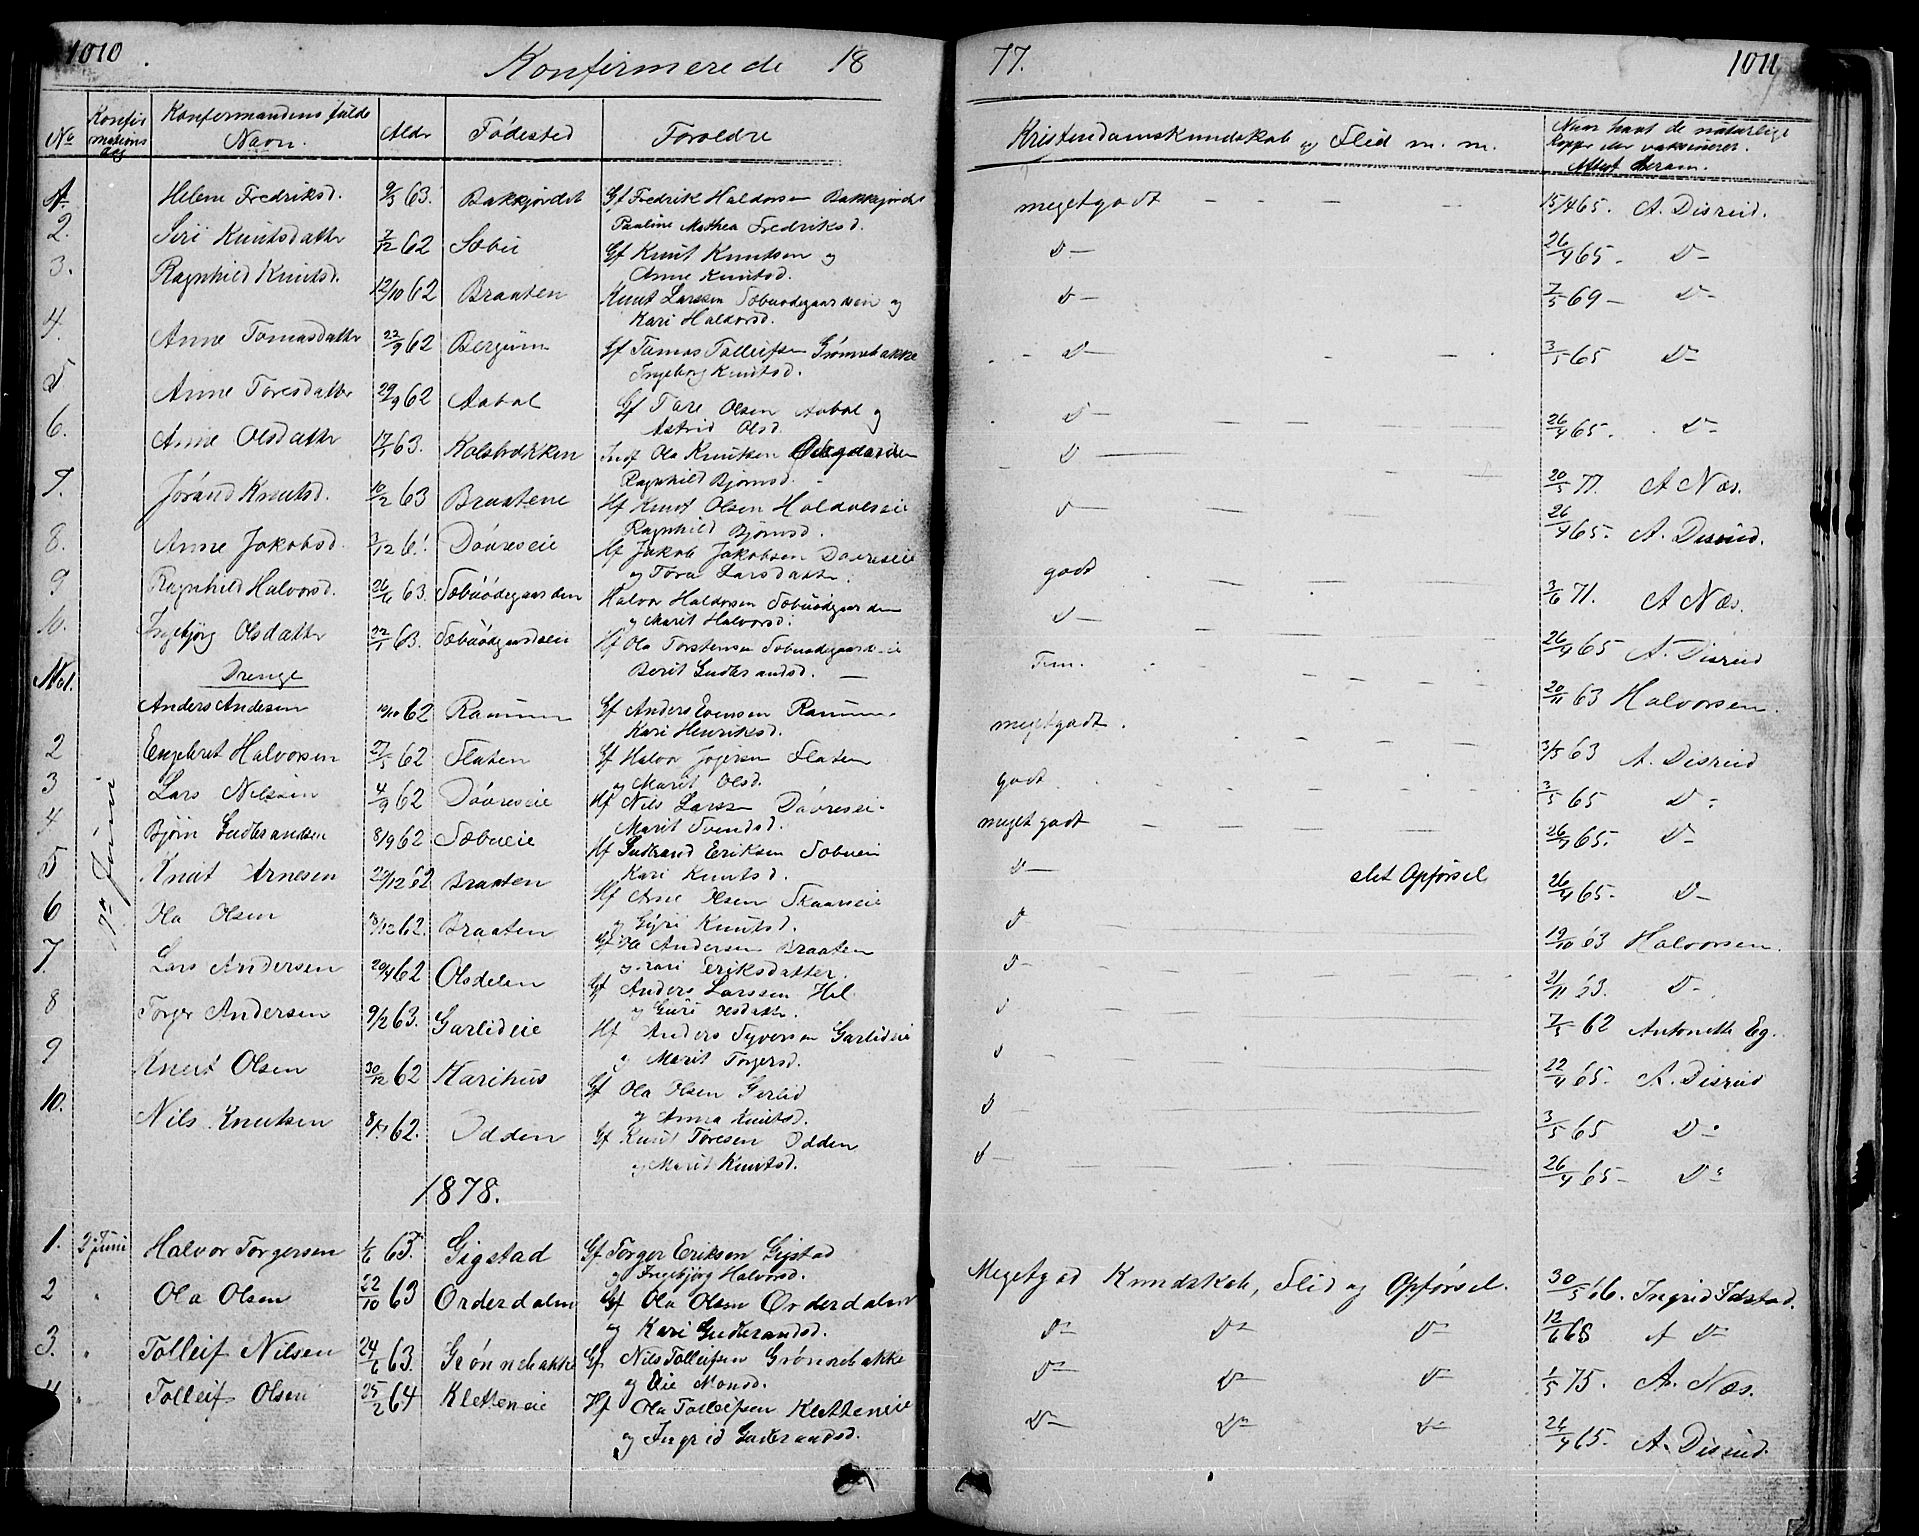 1010
Konfirmerede 18
77.
1011
No Konfirmations dag Konfermandens fulde Navn. Aldr Fødested Foroldre
Kristendomskundskab og Flid m. m.
Naar havt de naturlige Kopper eller vaksineret. Attest
1. Helene Fredriksd. 9/3 63. Bakkjordet Gf Fredrik Haldorsen Bakkjordet
Pauline Mathea Fredriksd.
megetgodt — — — — 15/4 65. A. Disrud.
2. Siri Knutsdatter 7/12 62 Sæbu Gf Knut Knutsen og
Anne Knutsd.
D— 26/4 65. D—
3. Ragnhild Knutsd. 12/10 62 Braaten Knut Larssen Sæbuødegaardseie og
Kari Haldorsd.
D— 7/5 69 — D—
4. Anne Tomasdatter 22/9 62 Bergum Gf Tomas Tolleifsen Grønnebakke
Ingeborg Knutsd.
D— 3/5 65 D—
5 Anne Toresdatter 29/9 62 Aabol Gf Tore Olsen Aabol og
Astrid Olsd.
D— 26/4 65. D—
6. Anne Olsdatter 17/1 63. Kolsbrækken Ola Knutsen
Ragnhild Bjørnsd.
D 20/5 77. A Næs.
7. Jørand Knutsd. 10/2 63 Braatene Hf Knut Olsen
Ragnhild Bjørnsd.
D— 26/4 65. A. Disrud.
8. Anne Jakobsd. Døvreseie Hf Jakob Jakobsen Døvreseie
og Tora Larsdatter.
godt 3/6 71. A Næs.
9 Ragnhild Halvorsd. 26/6 63. Sæbuødegaarden Halvor Haldorsen Sæbuødgaarden
og Marit Halvorsd.
D— 26/4 65 A. Disrud
10. Ingebjørg Olsdatter 22/1 63. Sæbuødgaardseie Hf Ola Torstensen Sæbuødegaardseie
Berit Gudbrandsd. —
20/11 63 Halvorsen.
Drenge
No 1. Anders Andesen 10/10 62 Ranum Gf Anders Evensen Ranum
Kari Henriksd.
megetgodt. 3/5 63 A. Disrud
2 Engebret Halvorsen 27/5 62 Flaten Gf Halvor Flaten
og Marit Olsd.
godt 3/5 65 D—
3 Lars Nilssen 4/9 62 Døvreseie Hf Nils Larssen Døvreseie
Marit Svendsd.
meget godt 26/4 65. D—
4 Bjørn Gudbrandsen 8/9 62 Sæbueie Hf Gudbrand Eriksen Sæbueie
Kari Knutsd.
D— slet Opførsel 26/4 65. D—
17de Juni
5 Knut Arnesen Braaten Hf Arne Olsen Skaareie
og Gyri Knutsd.
D 19/10 63 Halvorsen.
6 Ola Olsen Braaten Gf Ola Andersen Braaten
og Kari Eriksdatter.
D— D—
7. Lars Andersen 20/4 62 Olsdelen Gf Anders Larssen
og Guri Olsdatter.
D 7/5 62 Antonette Eg.
8 Torger Andersen 9/2 63. Garlideie Hf Anders Syversen Garlideie
og Marit Torgersd.
D— 22/4 65. A. Disrud
9 Knut Olsen 30/12 62 Karihus Gf Ola Olsen Gerlid
og Anna Knutsd.
D— 3/5 65 D—
10. Nils Knutsen 62. Odden Gf Knut Toresen Odden
og Marit Knutsd.
D— 26/4 65 — D—
1878.
1. 2. Juni Halvor Torgersen 1/6 63 Gigstad Gf Torger Eriksen Gigstad
og Ingebjørg Halvorsd.
Megetgod Kundskab, Flid og Opførsel. 30/5 66. Ingrid Idstad.
2 " Ola Olsen 22/10 63 Orderdalen Gf Ola Olsen Orderdalen
og Kari Gudbrandsd.
D— D— D— 12/6 68 A D—
3. " Tolleif Nilsen 24/6 63. Grønnebakke Gf Nils Tolleifsen Grønnebakke
og Eie Monsd.
D— D— D— 1/5 75. A. Næs.
4 " Tolleif Olsen 25/2 64 Kletteneie Hf Ola Tolleifsen Kletteneie
og Ingrid Gudbrandsd.
D— D— D— 26/4 65. A. Disrud.